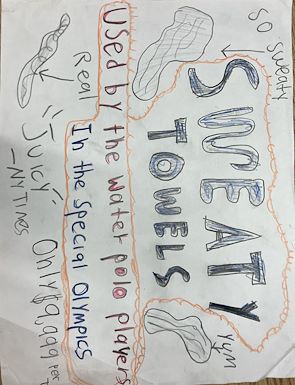 SO SWEATY
SWEATY
TOWELS
YUM
Used by the water polo players
In the Special Olympics
Real
"Juicy"
-NY TIMES
Only $9,999 PER